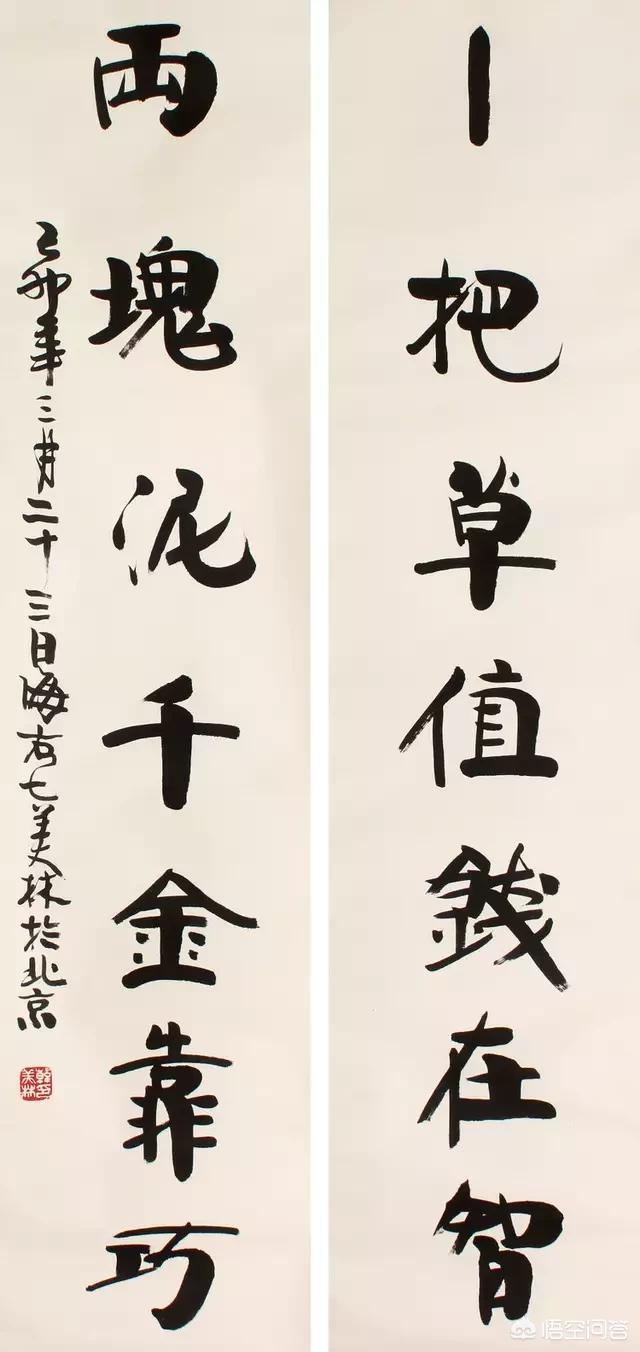 1把草值錢在智
兩塊泥千金靠巧
己卯年三月二十三日海右七美林於北京
韓印
美林
悟空问答